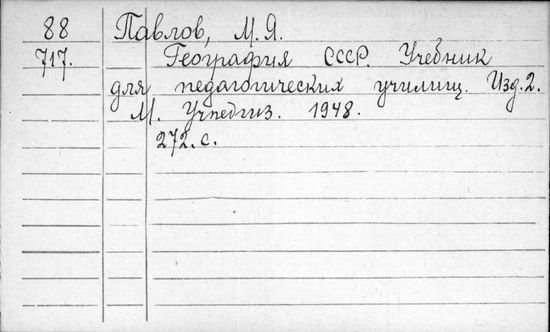 88 Павлов, М.Я.
717. География СССР. Учебник
для педагогических училищ. Изд. 2.
М. Учпедгиз. 1948.
272. с.